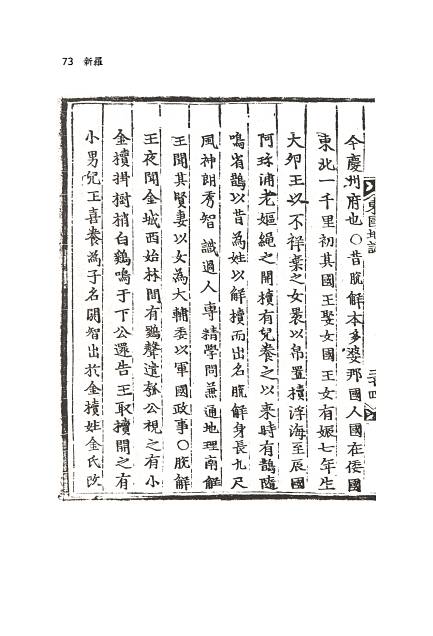 73 新羅
東國地誌
今慶州府也〇昔脫解本多婆那國人國在倭國
東北一千里初其國王娶女國王女有娠七年生
大卵王以不祥棄之女裹以帛置櫝浮海至辰國
阿珎浦老嫗繩之開櫝有兒養之以来時有鵲隨
鳴省鵲以昔為姓以解櫝而出名脫解身長九尺
風神朗秀智識過人專精學問兼通地理南解
王聞其賢妻以女為大輔委以軍國政事〇脫解
王夜聞金城西始林間有鷄聲遣瓠公視之有小
金櫝掛樹梢白鷄鳴于下公還告王取櫝開之有
小男兒王喜養為子名閼智出於金櫝姓金氏改